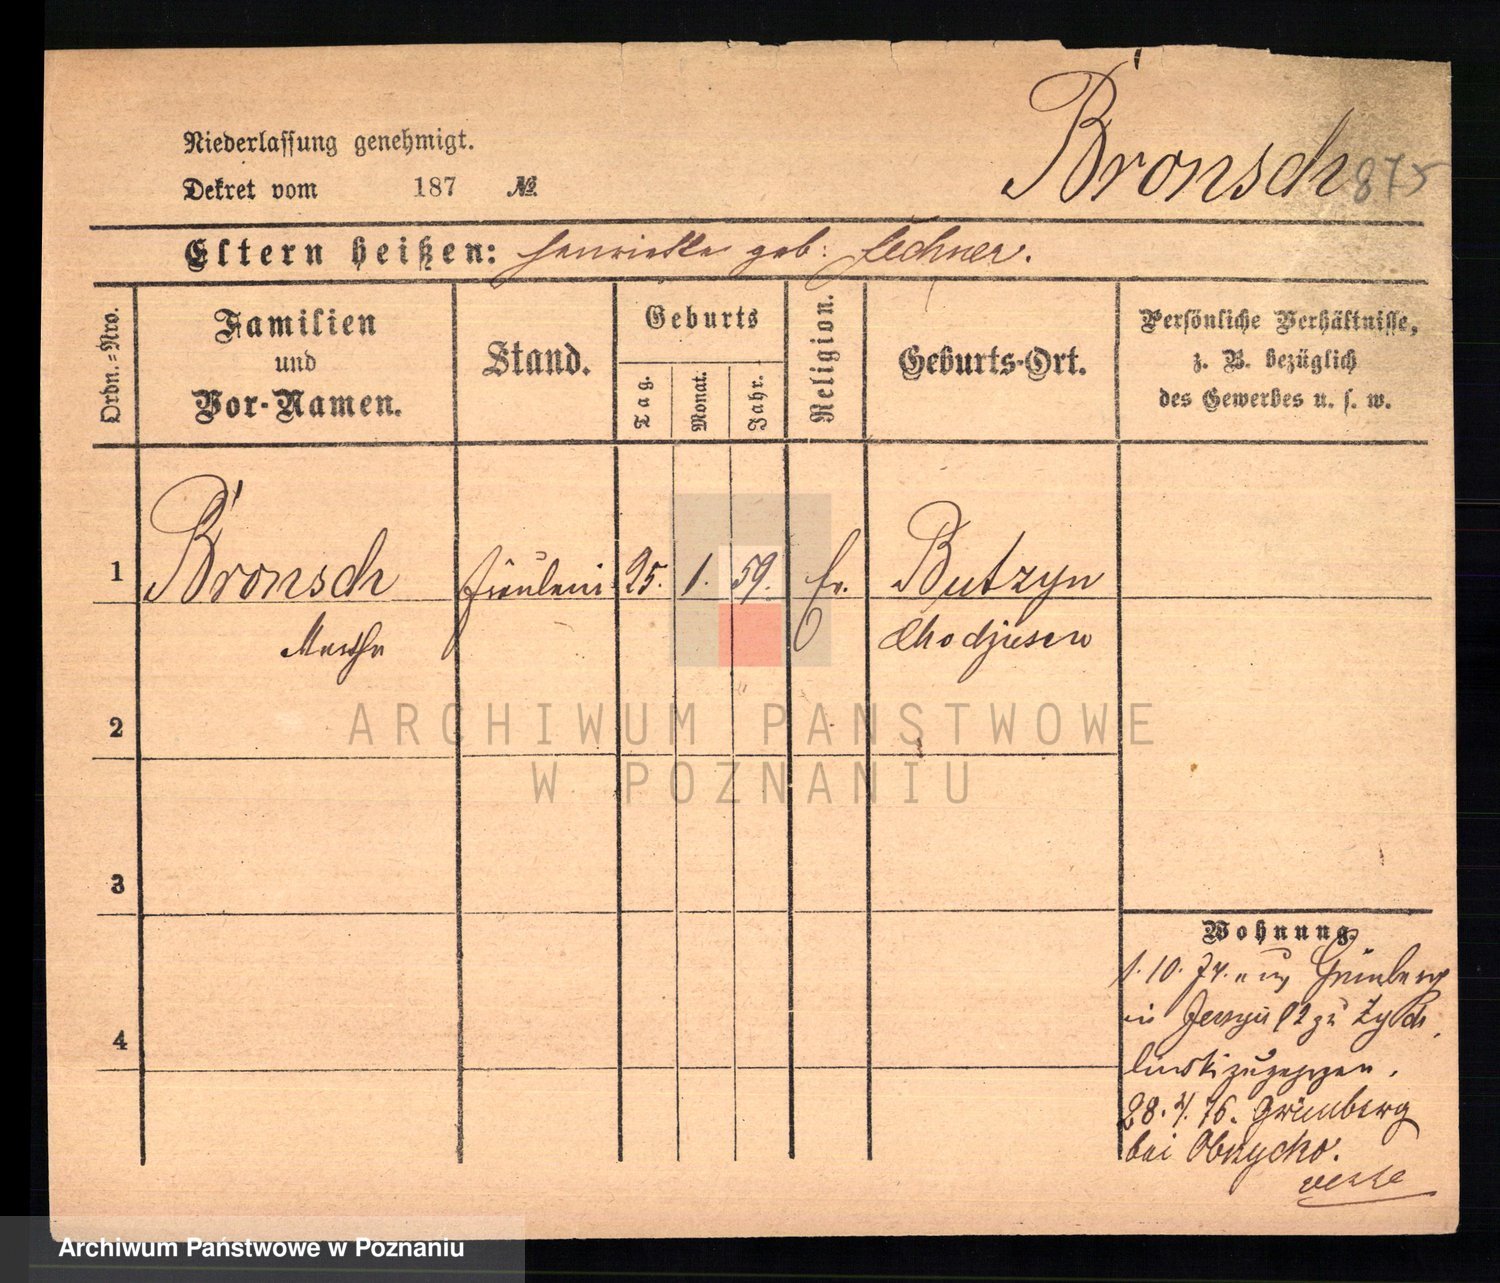 Bronsch 875
Niederlassung genehmigt.
Dekret vom 187 №
Eltern heißen: Henriette geb: Lechner.
Ordn.=Nro.
Familien
und
Vor-Namen.
Stand.
Geburts
Tag.
Monat.
Jahr.
Religion.
Geburts-Ort.
Persönliche Verhältnisse,
z. B. bezüglich
des Gewerbes u. s. w.
1 Bronsch Fräulein 25. 1. 59. Ev. Butzyn
Marthe Chodziesen
2
ARCHIWUM PAŃSTWOWE
W POZNANIU
3
Wohnung.
1. 10. 74. Grünberg
in 12 zu Zych
linski zugezogen.
4
28. 4. 76. Grünberg
bei Obrzycko.
verte
Archiwum Państwowe w Poznaniu